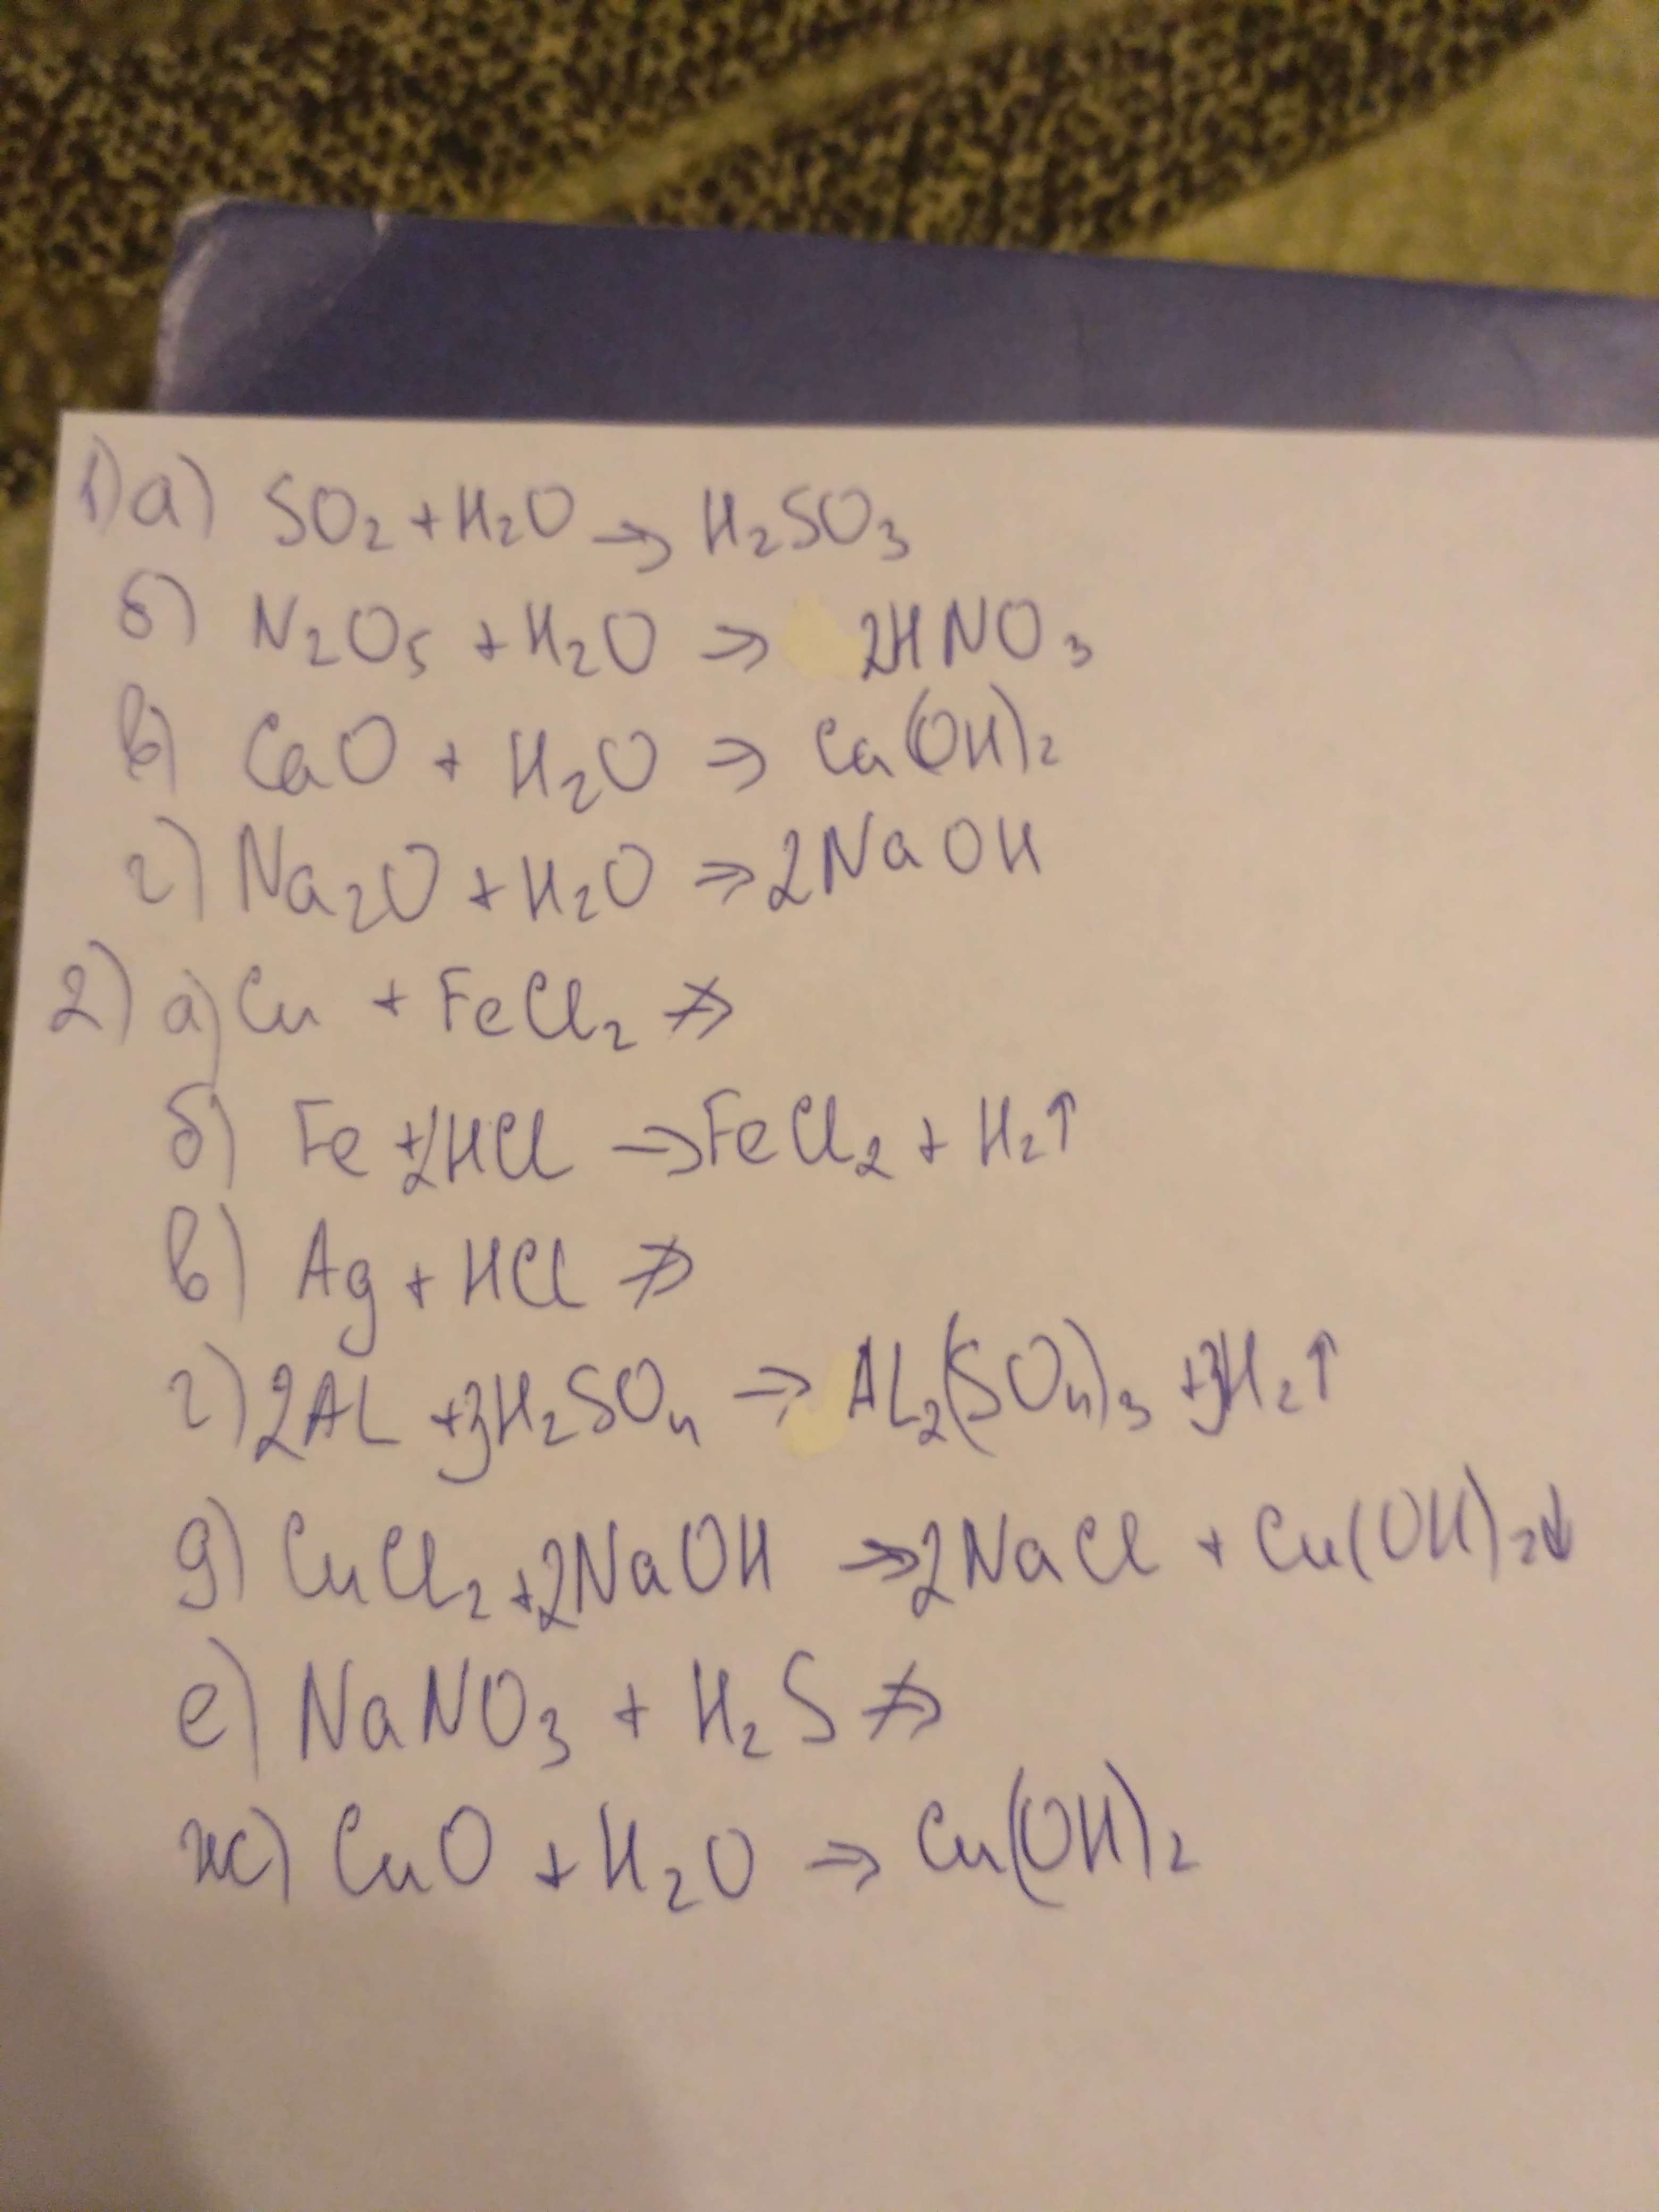 1) а) SO₂ + H₂O → H₂SO₃
б) N₂O₅ + H₂O → 2HNO₃
в) CaO + H₂O → Ca(OH)₂
г) Na₂O + H₂O → 2NaOH
2) а) Cu + FeCl₂ ↛
б) Fe + 2HCl → FeCl₂ + H₂↑
в) Ag + HCl ↛
г) 2AL + 3H₂SO₄ → AL₂(SO₄)₃ + 3H₂↑
д) CuCl₂ + 2NaOH → 2NaCl + Cu(OH)₂↓
е) NaNO₃ + H₂S ↛
ж) CuO + H₂O → Cu(OH)₂